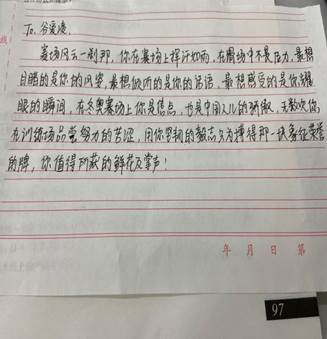 To. 谷爱凌
赛场风云一刹那，你在赛场上挥汗如雨，在周场中不是压力，最想
目睹的是你的风姿，最想倾听的是你的话语，最想感受的是你耀
眼的瞬间，在冬奥赛场上你是焦点，也是中国人儿的骄傲，无数次你
在训练场品尝努力的苦涩，用你坚韧的毅志只为博得那一块象征荣誉
的牌，你值得所有的鲜花及掌声！
年 月 日 第
97